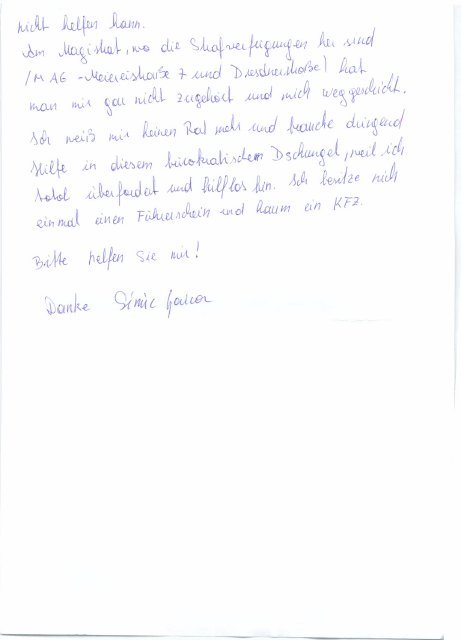 nicht helfen kann.
Am Magistrat, wo die Strafverfügungen her sind
(MA6 - Meiereistraße 7 und Dresdnerstraße) hat
man mir gar nicht zugehört und mich weggeschickt.
Ich weiß mir keinen Rat mehr und brauche dringend
Hilfe in diesem bürokratischem Dschungel, weil ich
total überfordert und hilflos bin. Ich besitze nicht
einmal einen Führerschein und kaum ein KFZ.
Bitte helfen Sie mir!
Danke Simic